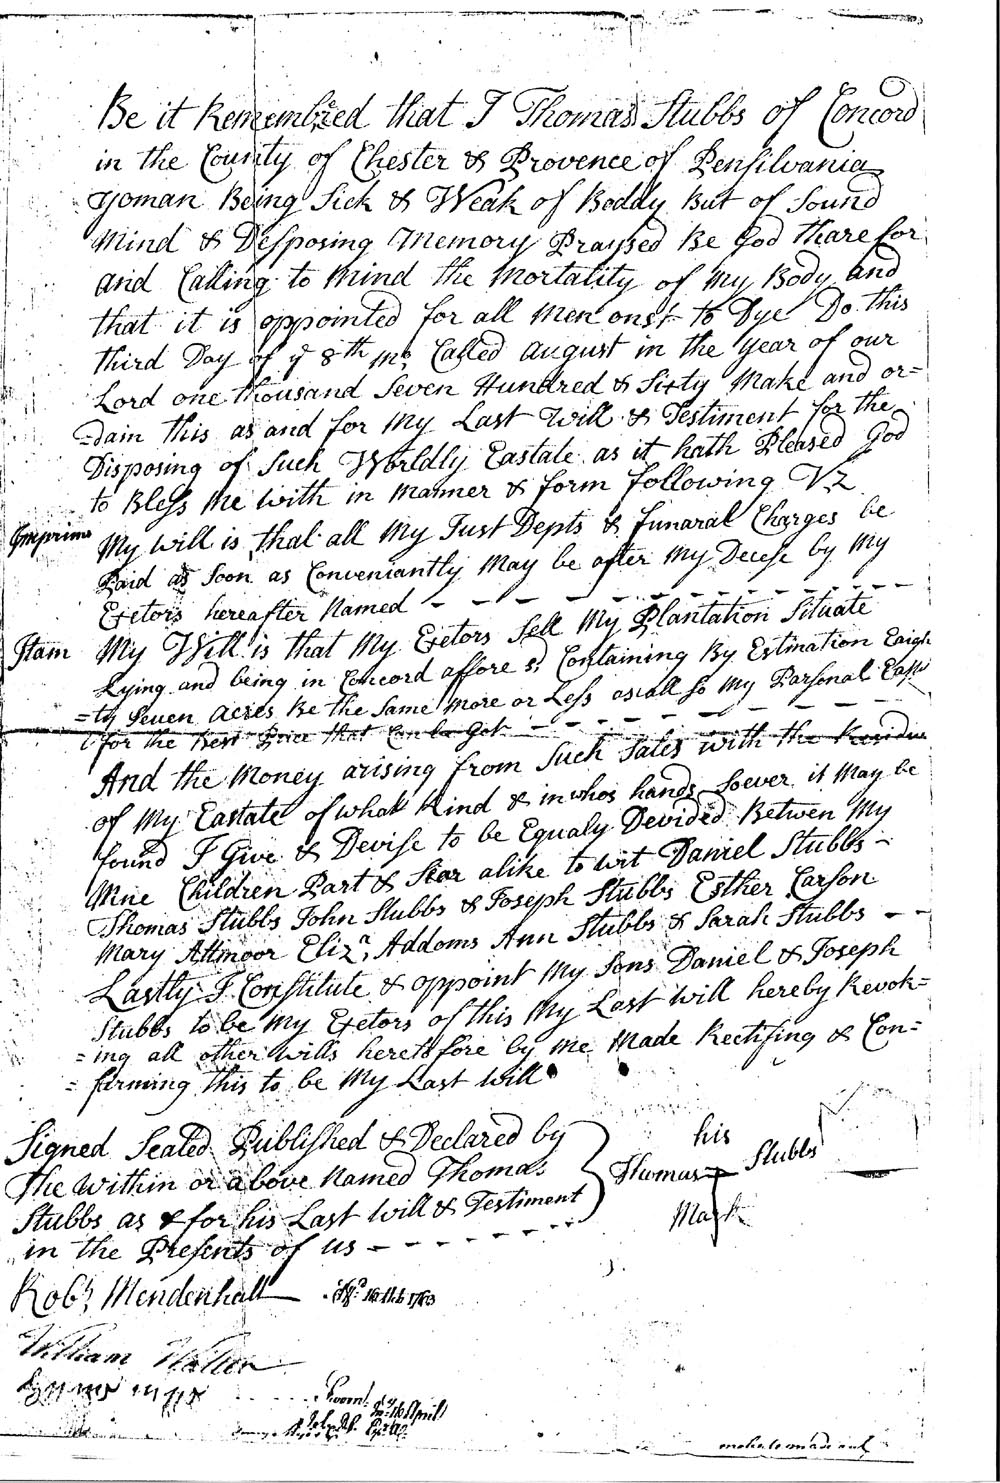 Be it Remembred that I Thomas Stubbs of Concord
in the County of Chester & Provence of Pensilvania
yoman Being Sick & Weak of Boddy But of Sound
Mind & Desposing Memory Praysed Be God tharefor
and Calling to Mind the Mortality of My Body and
that it is oppointed for all Men onst to Dye Do this
third Day of ye 8th mo. Called August in the year of our
Lord one thousand Seven Hundred & Sixty Make and or=
=dain this as and for My Last Will & Testiment for the
Disposing of Such Worldly Eastate as it hath Pleased God
to Bless Me with in Manner & form following Vz
Imprims My Will is that all My Just Depts & funaral Charges be
Paid as Soon as Conveniantly May be after My Decese by My
Exetors hereafter Named - - - - - - - - - - - -
Itam My Will is that My Exetors Sell My Plantation Situate
Lying and being in Concord affore sd. Containing By Estimation Eaigh
=ty Seven acres Be the Same more or Less as all so My Parsonal East
for the Best Price that Can be Got - - - - - -
And the Money arising from Such Sales with the Residue
of My Eastate of what Kind & in whos hands Soever it May be
found I Give & Devise to be Equaly Devided Betwen My
Nine Children Part & Sear alike to wit Daniel Stubbs -
Thomas Stubbs John Stubbs & Joseph Stubbs Esther Carson
Mary Attmoor Eliza. Addoms Ann Stubbs & Sarah Stubbs - -
Lastly I Constitute & oppoint My Sons Daniel & Joseph
Stubbs to be My Exetors of this My Last Will hereby Revok=
=ing all other Wills heretofore by me Made Rectifing & Con=
=farming this to be My Last Will
Signed Sealed Published & Declared by
the Within or above Named Thomas
Stubbs as & for his Last Will & Testiment
in the Presents of us - - - - - - -
his
Thomas Stubbs
Mark
Robt. Mendenhall
William
April